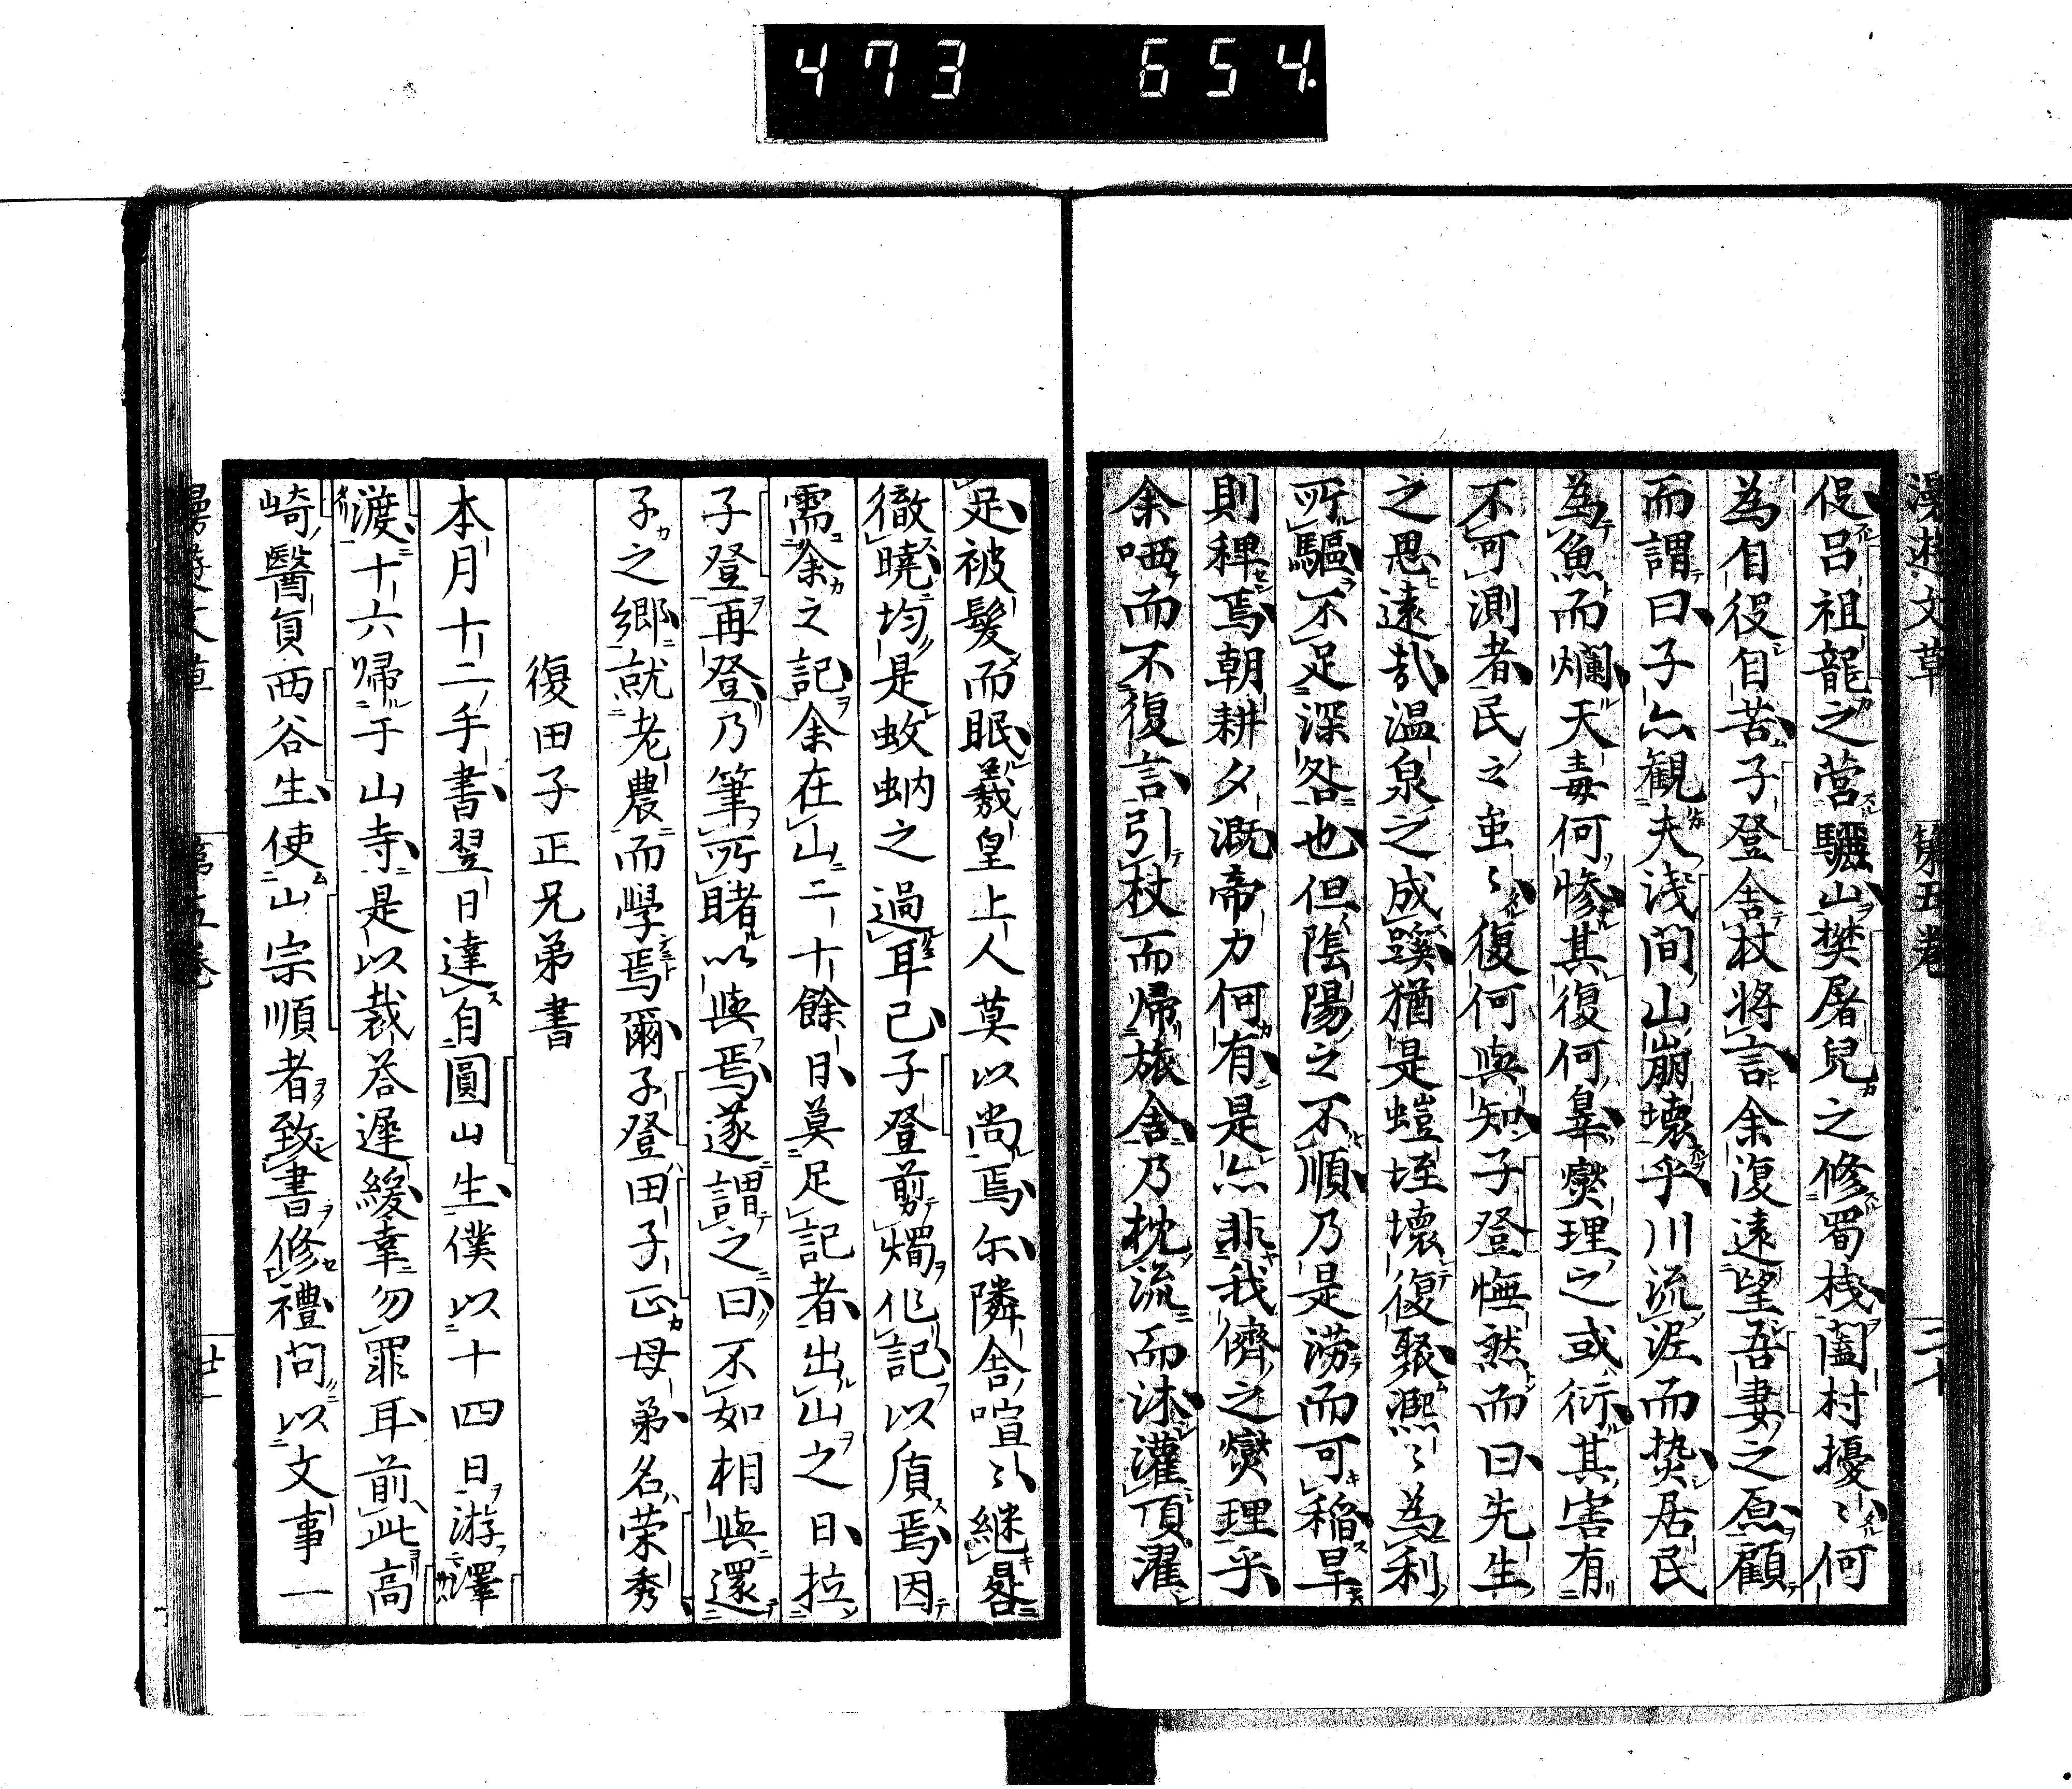 473 654.
漫遊文草 第五卷 三十
促呂祖龍之営驪山樊屠兒之修蜀棧闔村擾〻何
為自役自苦子登舎杖将言余復遠望吾妻之原顧
而謂曰子亦観夫浅間山崩壊乎川流泥而爇居民
為魚而爛天毒何惨其復何辠爕理之或衍其害有
不可測者民之蚩〻復何與知子登憮然而曰先生
之思遠哉温泉之成蹊猶是螘垤壊復聚熙〻為利
所驅不足深咎也但陰陽之不順乃是澇而可稲旱
則稗焉朝耕夕漑帝力何有是亦非我儕之爕理乎
余哂而不復言引杖而帰旅舎乃枕流而沐灌頂濯
足被髮而眠羲皇上人莫以尚焉尓隣舎喧〻継晷
徹曉均是蚊蚋之過耳已子登剪燭作記以貭焉因
需余之記余在山二十餘日莫足記者出山之日拉
子登再登乃筆所睹以與焉遂謂之曰不如相與還
子之郷就老農而學焉爾子登田子正母弟名荣秀
復田子正兄弟書
本月十二手書翌日達自圓山生僕以十四日游澤
渡十六帰于山寺是以裁荅遲緩幸勿罪耳前此高
崎醫貟西谷生使山宗順者致書修禮問以文事一
漫遊文草 第五卷 廿一